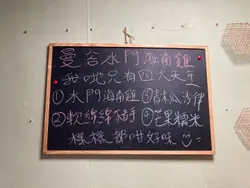 曼谷水門海南雞
我哋只有四大天王
①水門海南雞③青木瓜沙律
②軟綿綿豬手④芒果糯米
樣樣都咁好味